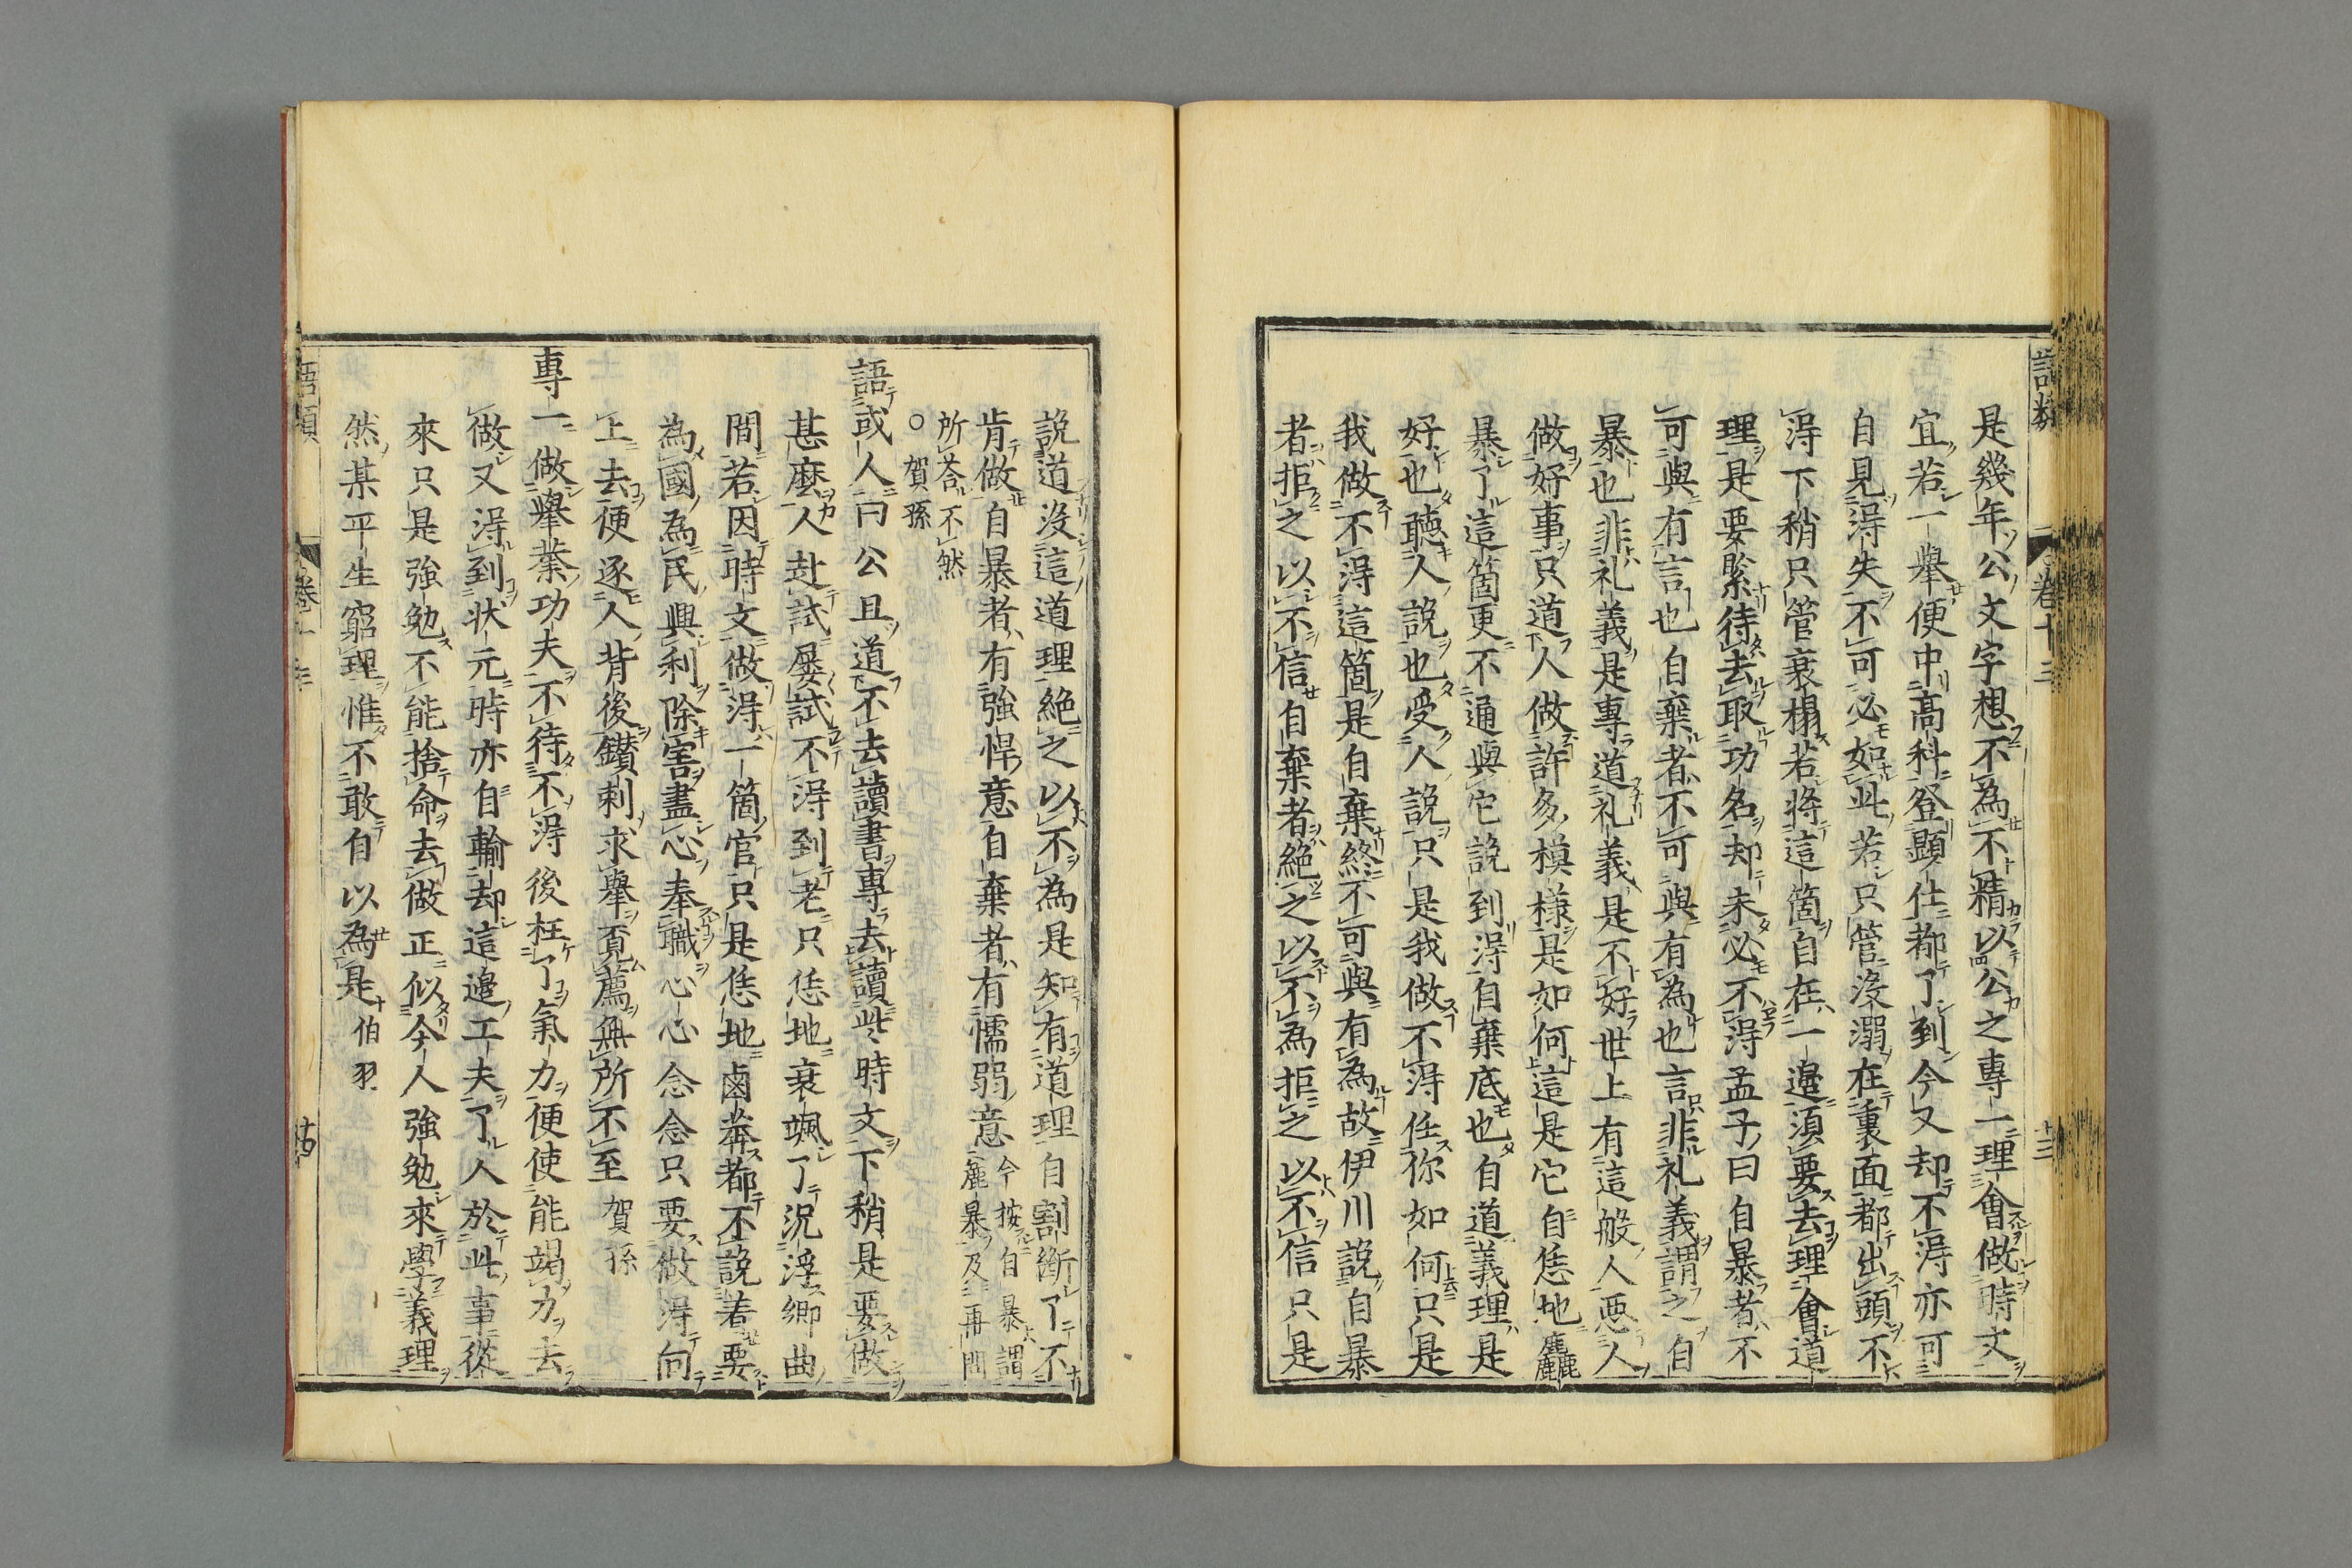 語類
卷十三
十三
是幾年公文字想不為不精以公之專一理會做時文
宜若一舉便中高科登顯仕都了到今又却不淂亦可
自見淂失不可必如此若只管沒溺在裏面都出頭不
淂下稍只管衰榻若將這箇自在一邉須要去理會道
理是要緊待去取功名却未必不淂孟子曰自暴者不
可與有言也自棄者不可與有為也言非礼義謂之自
暴也非礼義是專道礼義是不好世上有這般人惡人
做好事只道人做許多模様是如何這是它自恁地麤
暴了這箇更不通與它說到淂自棄底也自道義理是
好也聴人說也受人說只是我做不淂任你如何只是
我做不淂這箇是自棄終不可與有為故伊川說自暴
者拒之以不信自棄者絶之以不為拒之以不信只是
說道沒這道理絶之以不為是知有道理自割斷了不
肯做自暴者有強悍意自棄者有懦弱意今按自暴謂
麄暴及再問
所荅不然
○賀孫
語或人曰公且道不去讀書專去讀此時文下稍是要做
甚麽人赴試屡試不淂到老只恁地衰颯了況浮郷曲
間若因時文做淂一箇官只是恁地鹵莾都不說着要
為國為民興利除害盡心奉職心心念念只要做淂向
上去便逐人背後鑚刺求舉覔薦無所不至賀孫
專一做舉業功夫不待不淂後枉了氣力便使能竭力去
做又淂到状元時亦自輸却這邉工夫了人於此事從
來只是強勉不能捨命去做正似今人強勉來學義理
然某平生窮理惟不敢自以為是伯羽
語類